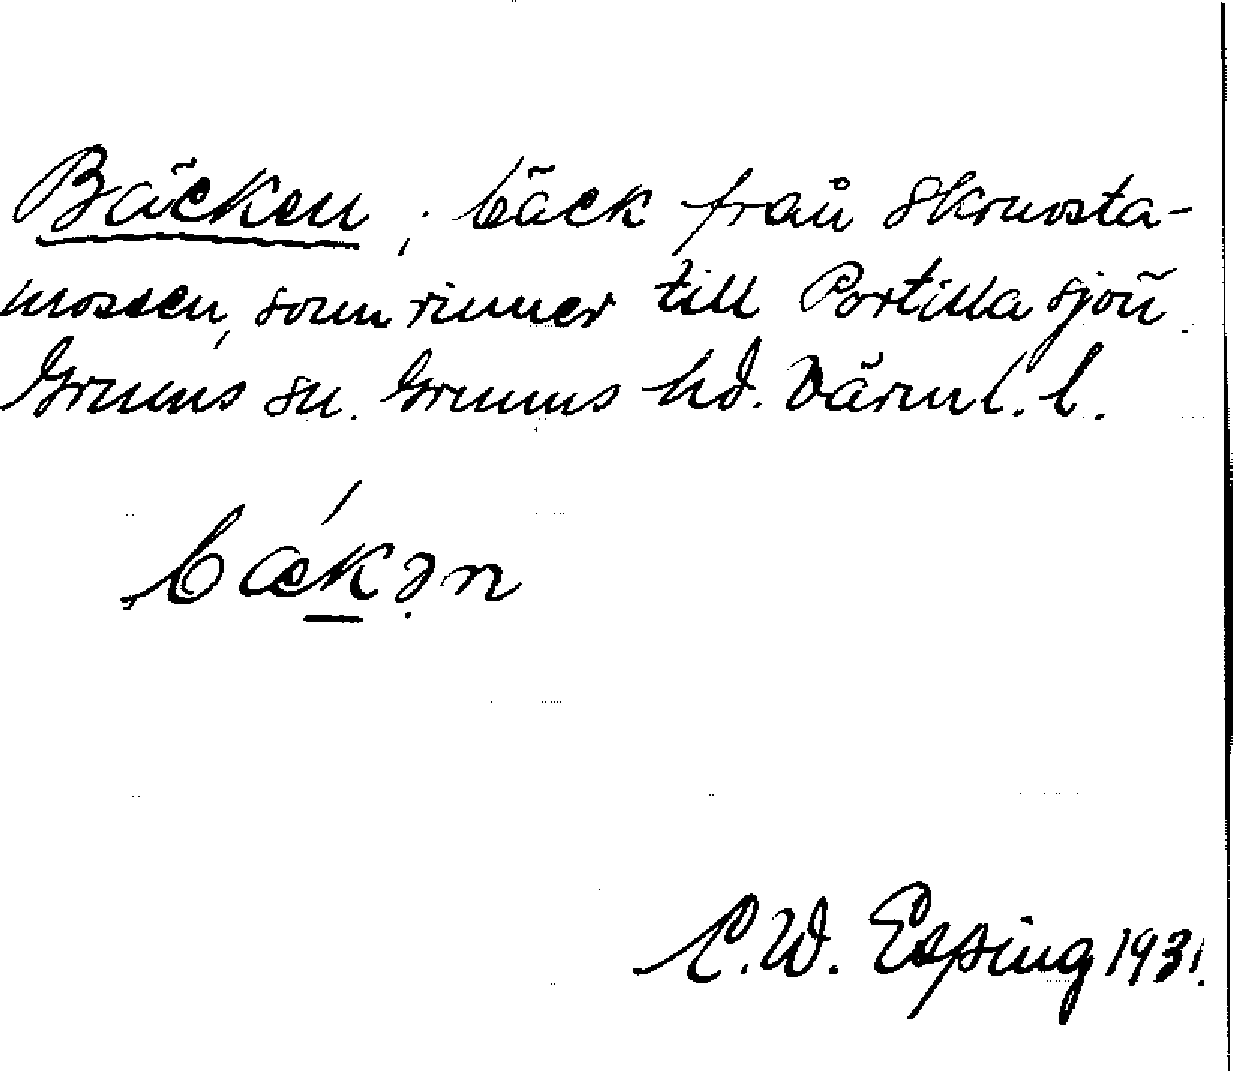 Bäcken; bäck från Skruvsta-
mossen, som rinner till Portilla sjön.
Grums sn. Grums hd. Värml. l.
bækən
C.W. Esping 1931.